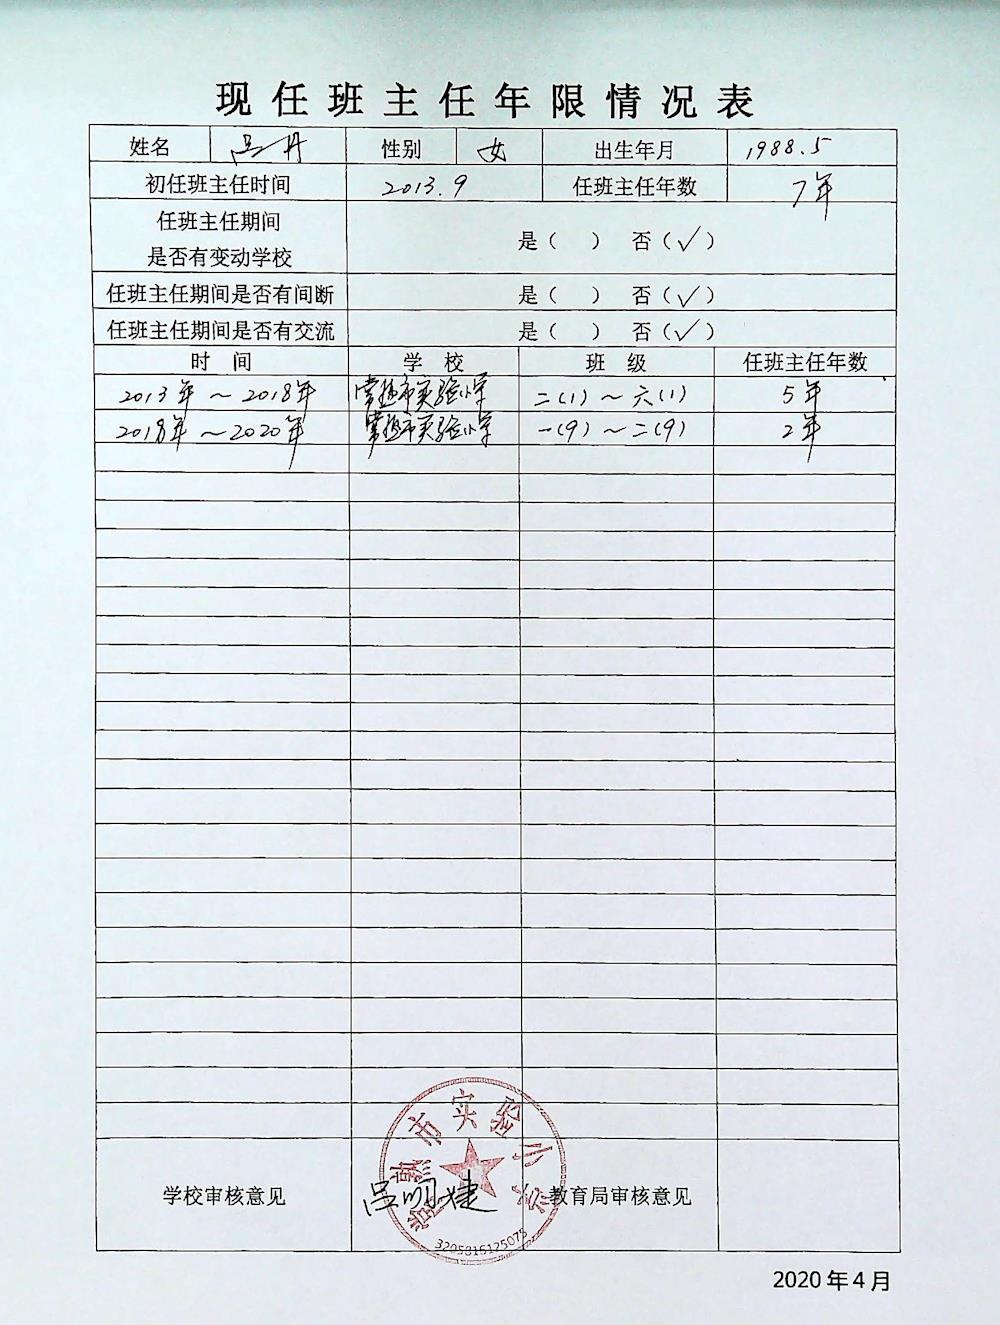 现任班主任年限情况表
姓名 吕丹 性别 女 出生年月 1988.5
初任班主任时间 2013.9 任班主任年数 7年
任班主任期间
是否有变动学校 是（ ） 否（√）
任班主任期间是否有间断 是（ ） 否（√）
任班主任期间是否有交流 是（ ） 否（√）
时 间 学 校 班 级 任班主任年数
2013年～2018年 常熟市实验小学 二(1)～六(1) 5年
2018年～2020年 常熟市实验小学 一(9)～二(9) 2年
常熟市实验小学
学校审核意见 吕明婕 教育局审核意见
3205816125075
2020年4月